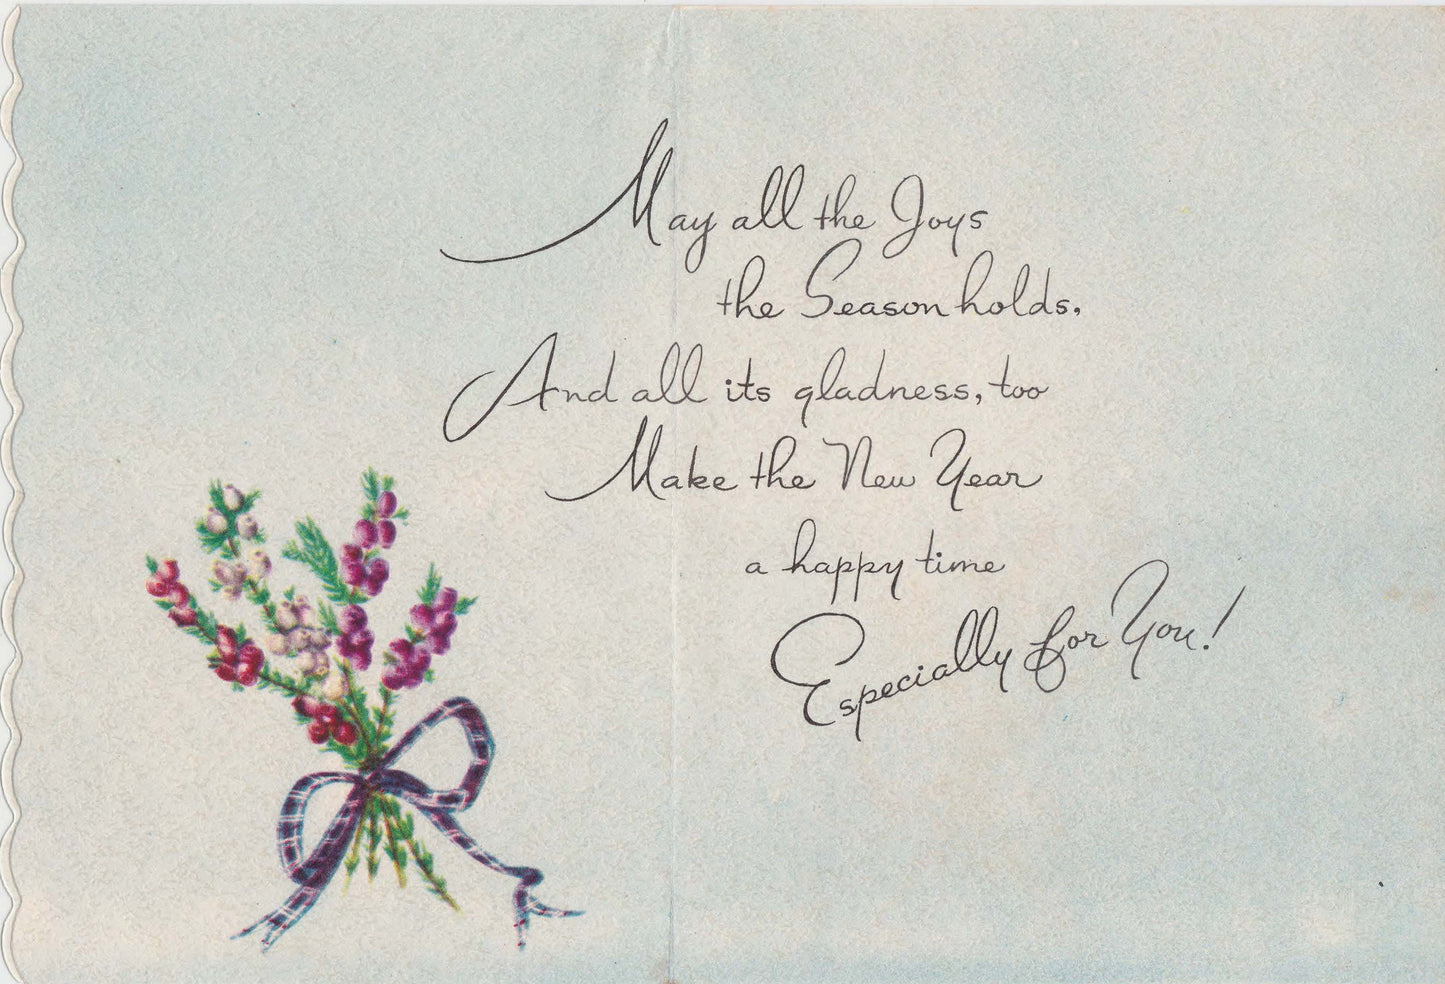 May all the Joys
the Season holds,
And all its gladness, too
Make the New Year
a happy time
Especially for You!